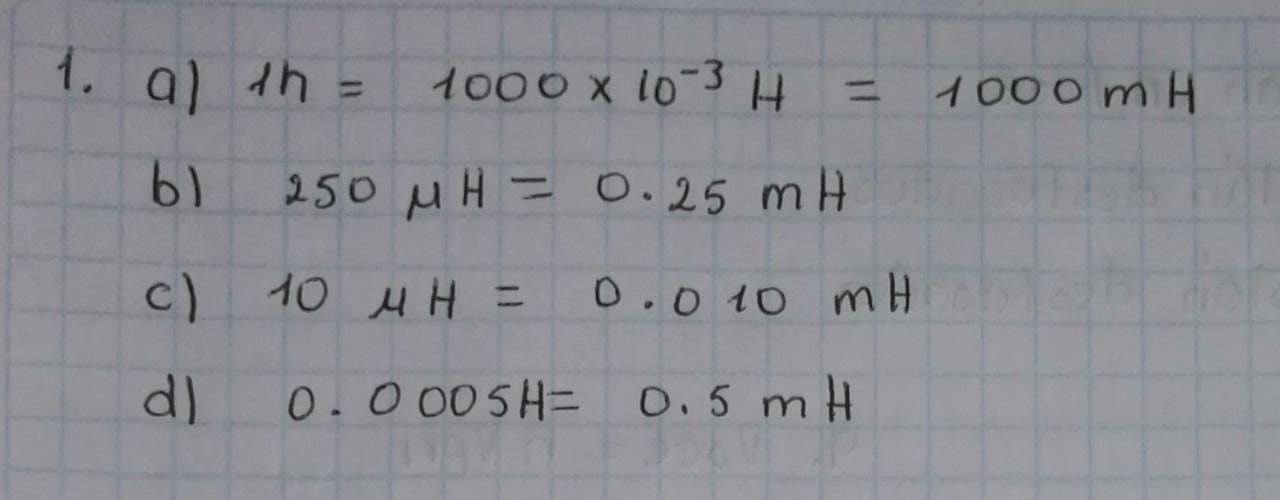 1. a) 1h = 1000 x 10⁻³ H = 1000 mH
b) 250 μH = 0.25 mH
c) 10 μH = 0.010 mH
d) 0.0005H= 0.5 mH